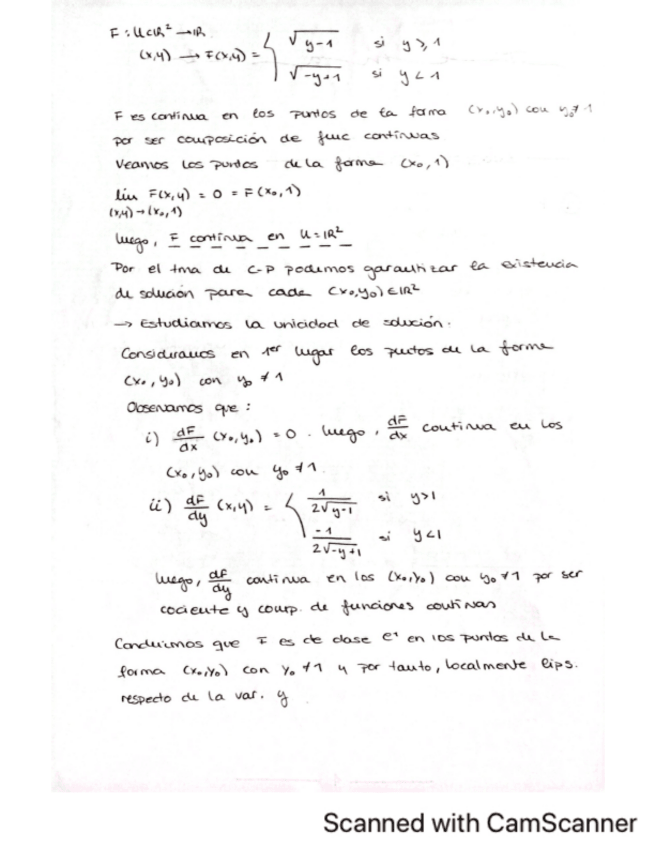 F : U⊂ℝ² → ℝ
(x,y) → F(x,y) = { √(y-1) si y ≥ 1
√(-y+1) si y < 1
F es continua en los puntos de la forma (x₀,y₀) con y₀≠1
por ser composición de func continuas
Veamos los puntos de la forma (x₀,1)
lim F(x,y) = 0 = F(x₀,1)
(x,y)→(x₀,1)
luego, F continua en U=ℝ²
Por el tma de C-P podemos garantizar la existencia
de solución para cada (x₀,y₀)∈ℝ²
→ Estudiamos la unicidad de solución.
Consideramos en 1er lugar los puntos de la forma
(x₀,y₀) con y₀ ≠ 1
Observamos que :
i) dF/dx (x₀,y₀) = 0 . luego, dF/dx continua en los
(x₀,y₀) con y₀ ≠ 1.
ii) dF/dy (x,y) = { 1/(2√(y-1)) si y>1
-1/(2√(-y+1)) si y<1
luego, dF/dy continua en los (x₀,y₀) con y₀≠1 por ser
cociente y comp. de funciones continuas
Concluimos que F es de clase C¹ en los puntos de la
forma (x₀,y₀) con y₀ ≠1 y por tanto, localmente lips.
respecto de la var. y
Scanned with CamScanner